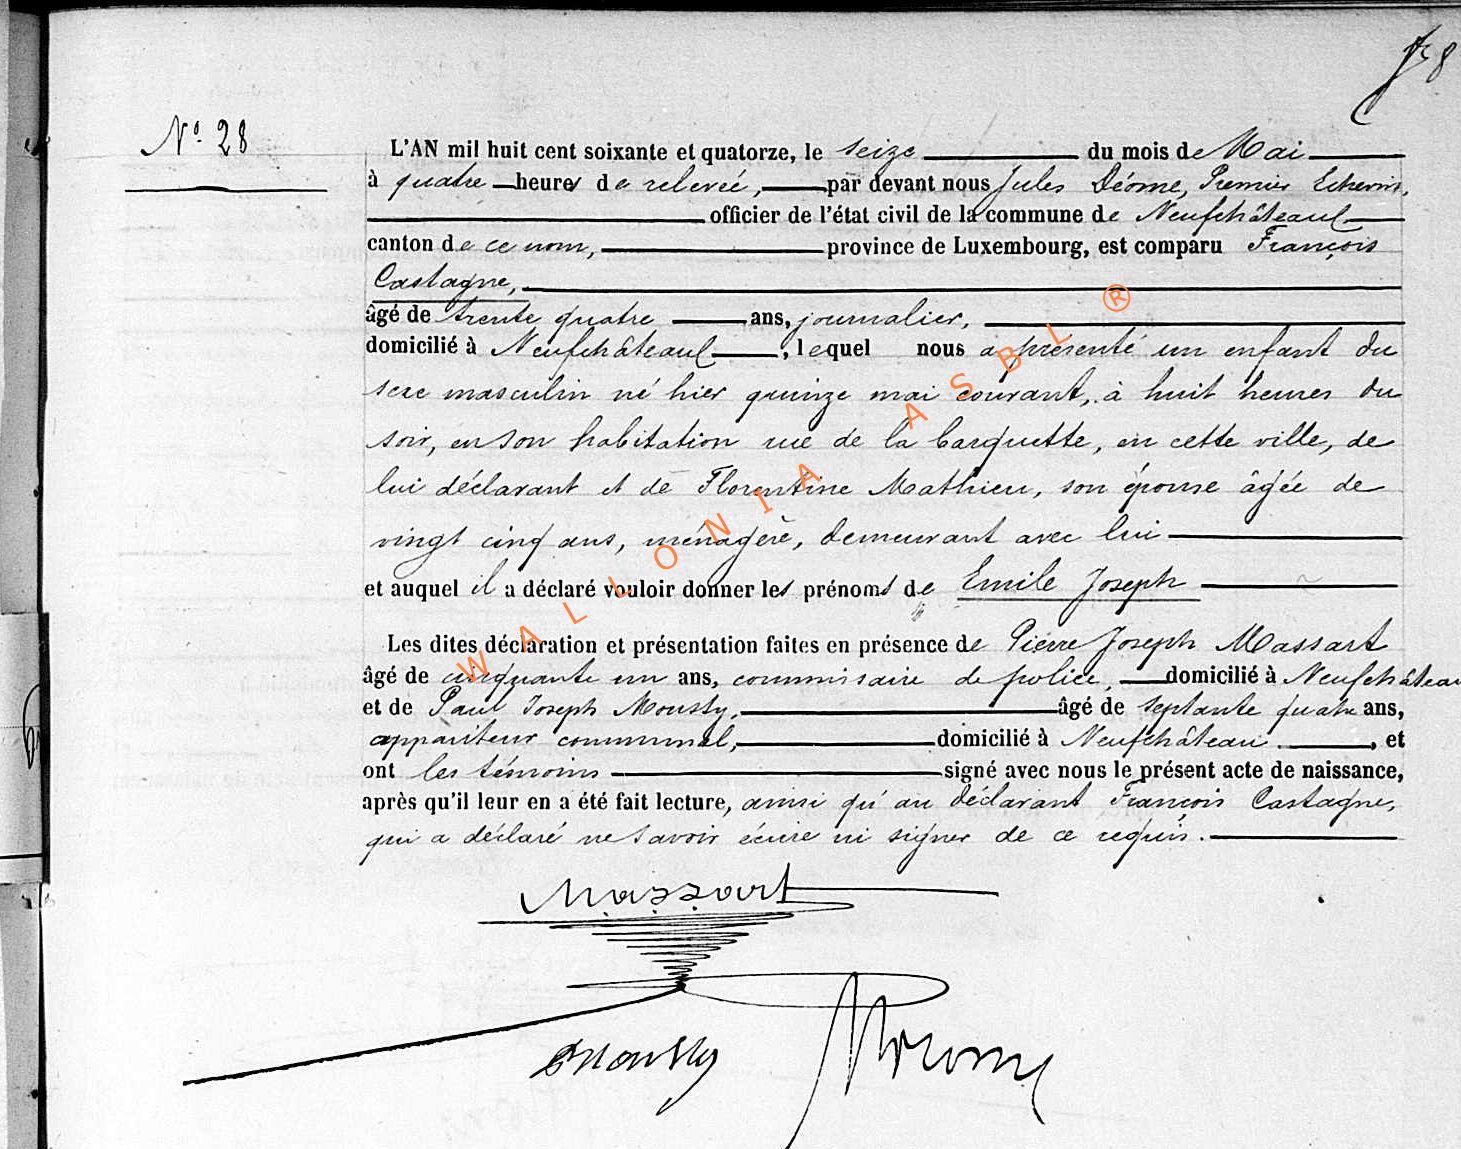 fr 8
N° 28
L'AN mil huit cent soixante et quatorze, le seize du mois de Mai
à quatre heures de relevée, par devant nous Jules Déome, Premier Echevin,
officier de l'état civil de la commune de Neufchâteau
canton de ce nom, province de Luxembourg, est comparu François
Castagne,
âgé de trente quatre ans, journalier,
domicilié à Neufchâteau, lequel nous a présenté un enfant du
sexe masculin né hier quinze mai courant, à huit heures du
soir, en son habitation rue de la barquette, en cette ville, de
lui déclarant et de Florentine Mathieu, son épouse âgée de
vingt cinq ans, ménagère, demeurant avec lui
et auquel il a déclaré vouloir donner les prénoms de Emile Joseph
Les dites déclaration et présentation faites en présence de Pierre Joseph Massart
âgé de cinquante un ans, commissaire de police, domicilié à Neufchâteau
et de Paul Joseph Mousty, âgé de septante quatre ans,
appariteur communal, domicilié à Neufchâteau, et
ont les témoins signé avec nous le présent acte de naissance,
après qu'il leur en a été fait lecture, ainsi qu'au déclarant François Castagne,
qui a déclaré ne savoir écrire ni signer de ce requis.
Massart
Mousty
WALLONIA ASBL ®